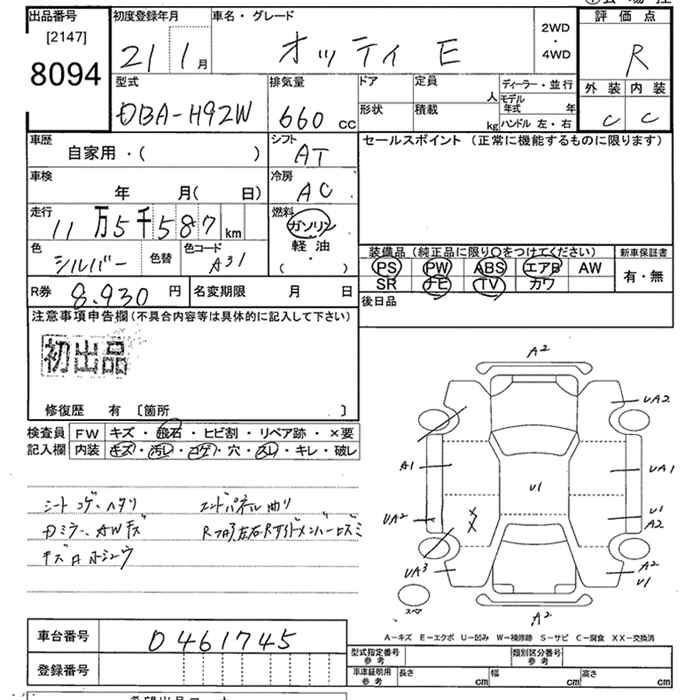 出品番号
[2147]
8094
初度登録年月
21 1月
車名・グレード
オッティ E
2WD
・
4WD
評価点
R
外装 内装
C C
型式
DBA-H92W
排気量
660 cc
ドア
定員
人
形状
積載
kg
ディーラー・並行
モデル年式 年
ハンドル 左・右
車歴
自家用・( )
シフト
AT
セールスポイント (正常に機能するものに限ります)
車検
年 月( 日)
冷房
AC
走行
11万5千587km
燃料
ガソリン
軽油
( ・ )
色
シルバー
色替
色コード
A31
装備品 (純正品に限り○をつけてください)
PS PW ABS エアB AW
SR ナビ TV カワ
新車保証書
有・無
R券 8,930 円
名変期限 月 日
後日品
注意事項申告欄 (不具合内容等は具体的に記入して下さい)
初出品
修復歴 有 [箇所 ]
検査員記入欄
FW キズ・飛石・ヒビ割・リペア跡・×要
内装 キズ・汚レ・コゲ・穴・スレ・キレ・破レ
シートコゲ・ヘタリ
エンドパネル曲り
Dミラー、AWキズ
A2
UA2
A1
UA1
U1
UA2
U1
A2
UA3
A2
U1
スペア
A2
A-キズ E-エクボ U-凹み W-補修跡 S-サビ C-腐食 XX-交換済
車台番号
0461745
登録番号
型式指定番号
参考
類別区分番号
参考
車庫証明用
参考
長さ cm
幅 cm
高さ cm